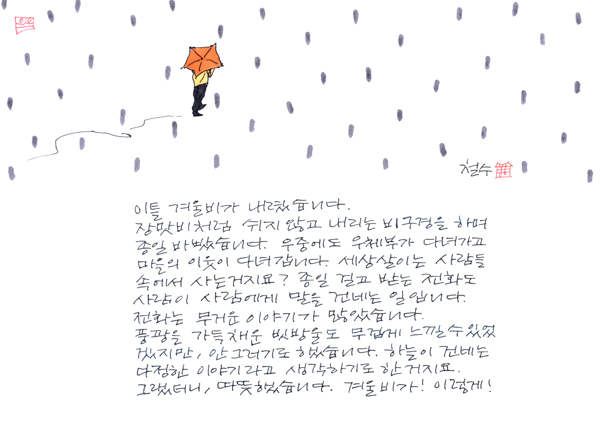 철수
이틀 겨울비가 내렸습니다.
장맛비처럼 쉬지않고 내리는 비구경을 하며
종일 바빴습니다. 우중에도 우체부가 다녀가고
마을의 이웃이 다녀갑니다. 세상살이는 사람들
속에서 사는거지요? 종일 걸고 받는 전화도
사람이 사람에게 말을 건네는 일입니다.
전화는 무거운 이야기가 많았습니다.
풍광을 가득채운 빗방울도 무겁게 느낄수있었
겠지만, 안그러기로 했습니다. 하늘이 건네는
다정한 이야기라고 생각하기로한거지요.
그랬더니, 따뜻했습니다. 겨울비가! 이렇게!